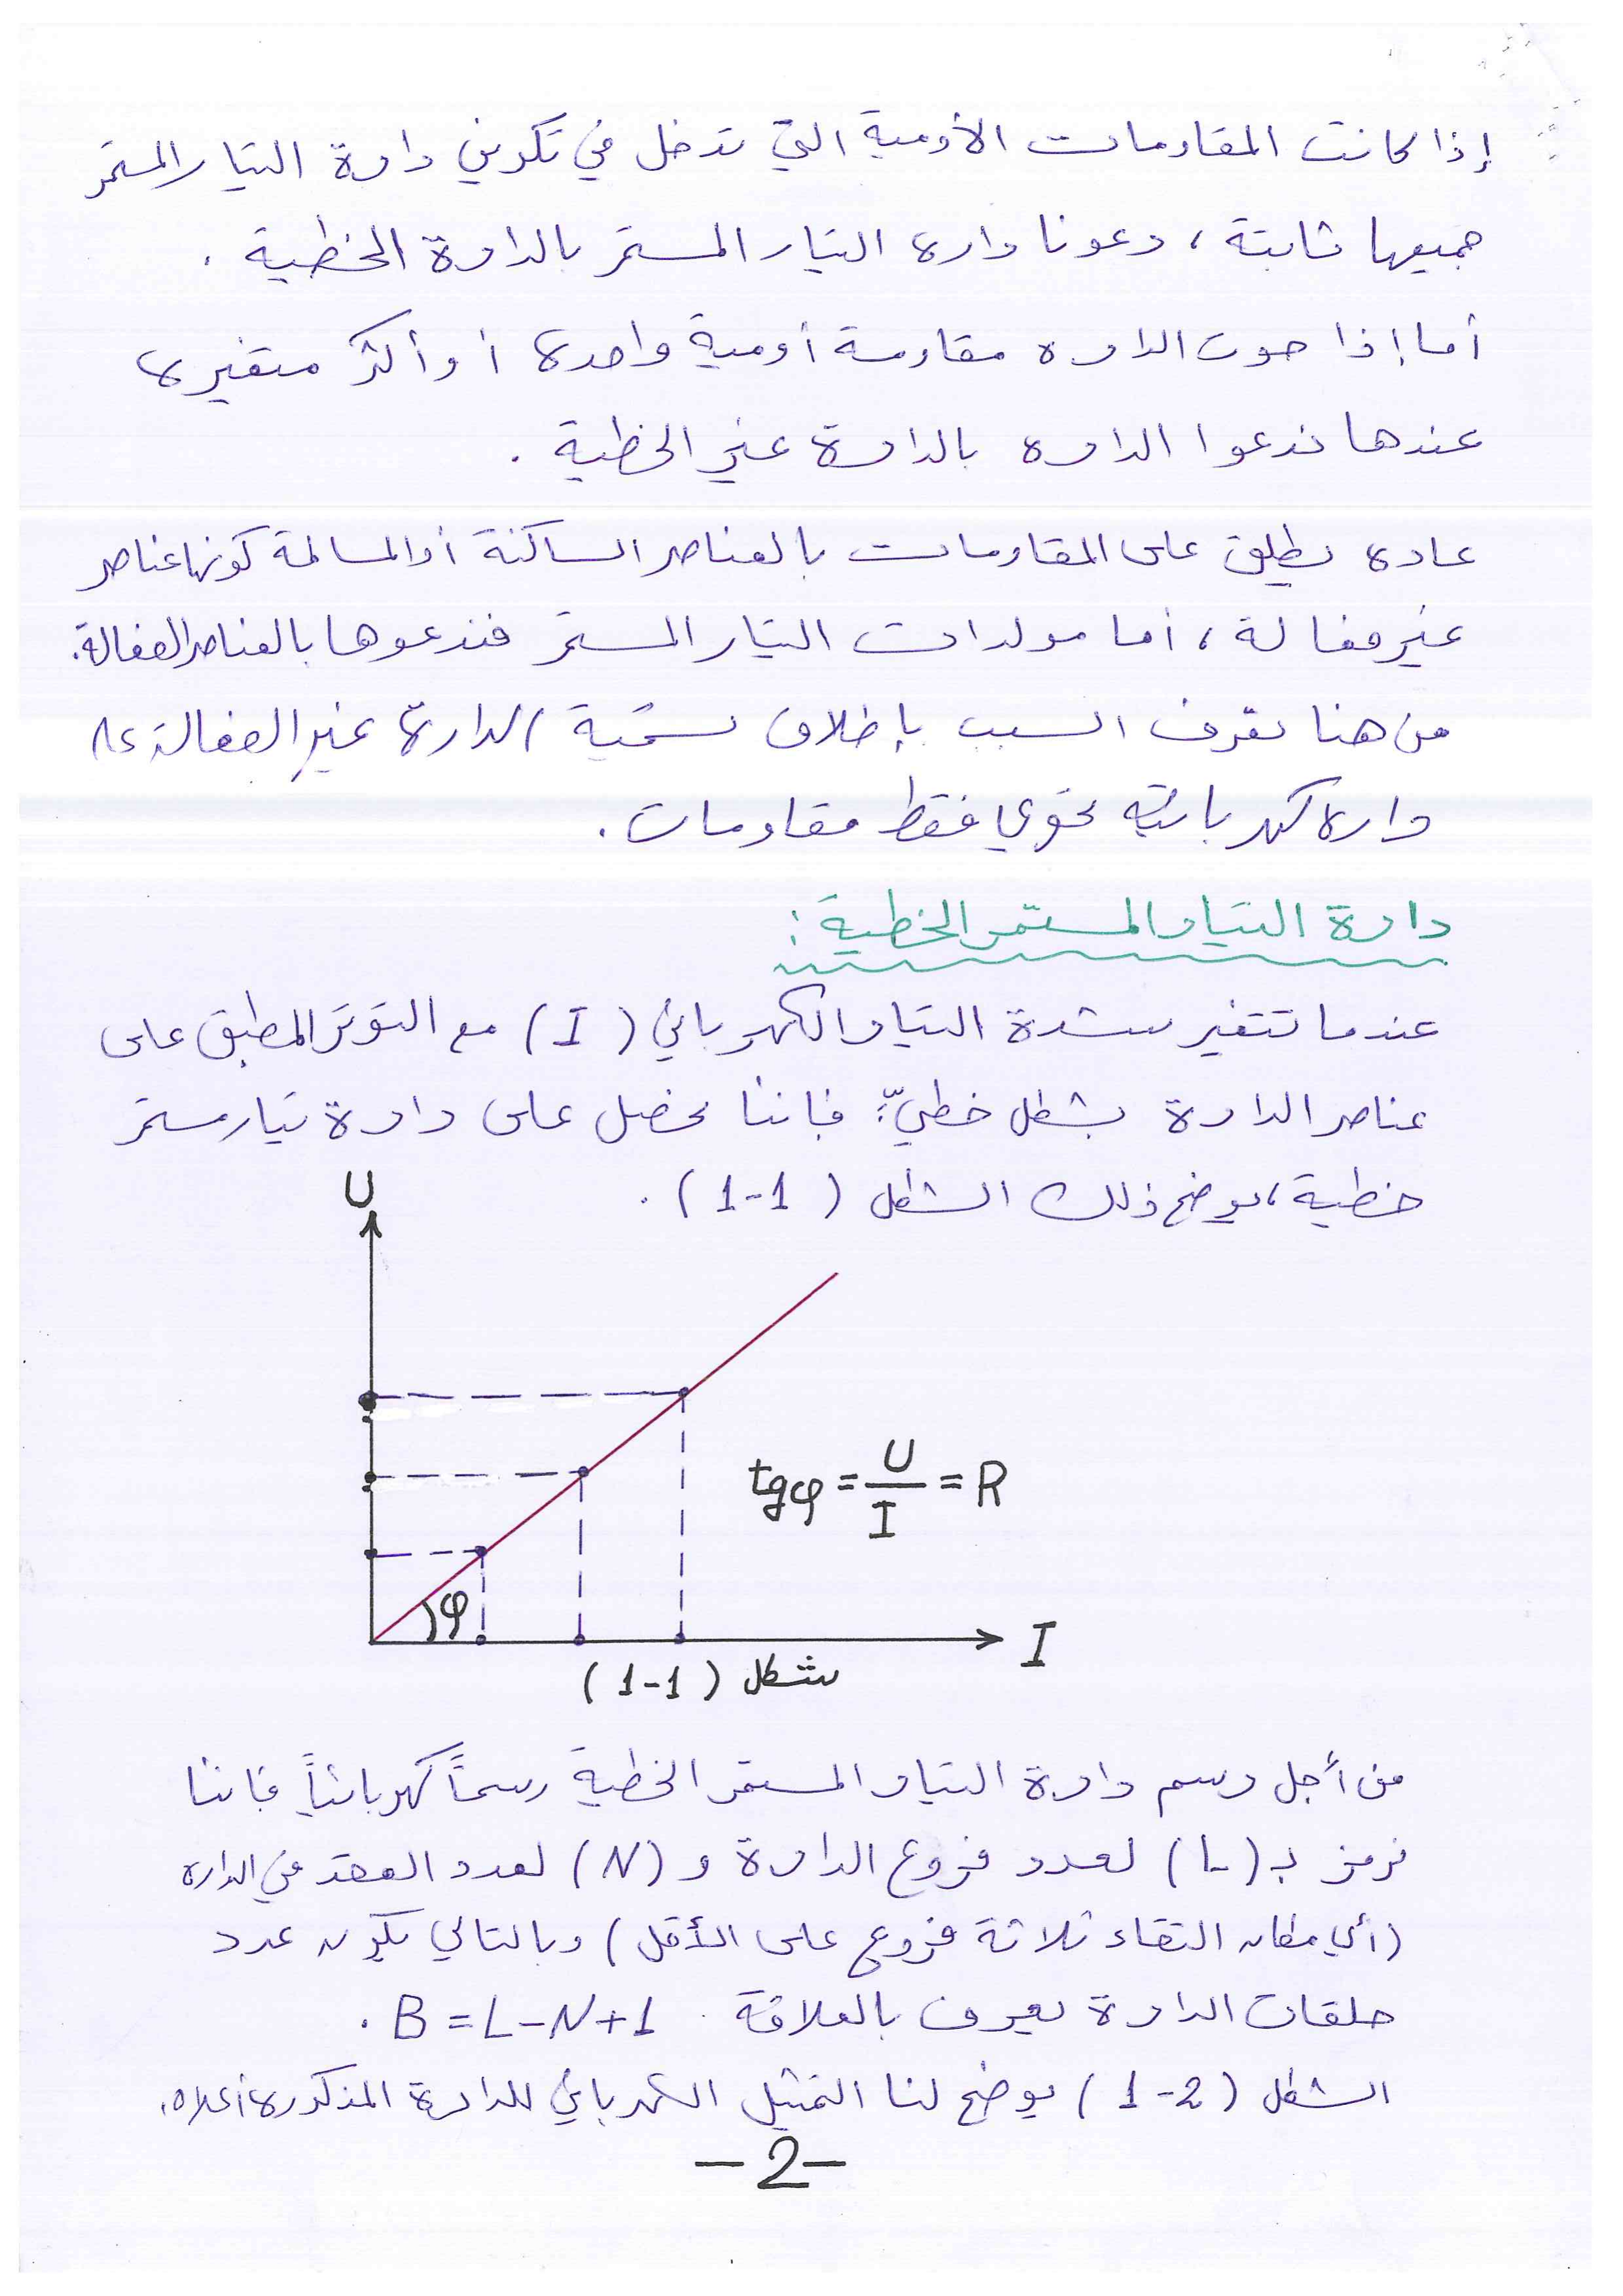 إذا كانت المقاومات الأومية التي تدخل في تكوين دارة التيار المستمر
جميعها ثابتة ، دعونا دارة التيار المستمر بالدارة الخطية .
أما إذا حوت الداره مقاومة أومية واحدة أو أكثر متغيرة
عندها ندعوا الداره بالدارة غير الخطية .
عادة يطلق على المقاومات بالعناصر الساكنة أو المسالمة كونها عناصر
غير فعالة ، أما مولدات التيار المستمر فندعوها بالعناصر الفعالة.
من هنا نعرف السبب بإطلاق تسمية الدارة غير الفعالة على
دارة كهربائية تحوي فقط مقاومات .
دارة التيار المستمر الخطية :
عندما تتغير شدة التيار الكهربائي ( I ) مع التوتر المطبق على
عناصر الدارة بشكل خطيّ ؛ فاننا نحصل على دارة تيار مستمر
خطية ، يوضح ذلك الشكل ( 1-1 ) .
U
tgφ = U/I = R
φ
I
شكل ( 1-1 )
من أجل رسم دارة التيار المستمر الخطية رسماً كهربائياً فاننا
نرمز بـ (L) لعدد فروع الدارة و (N) لعدد العقد في الداره
(أي مكان التقاء ثلاثة فروع على الأقل) وبالتالي يكون عدد
حلقات الدارة يعرف بالعلاقة B = L-N+1 .
الشكل ( 1-2 ) يوضح لنا التمثيل الكهربائي للدارة المذكورة أعلاه.
-2-